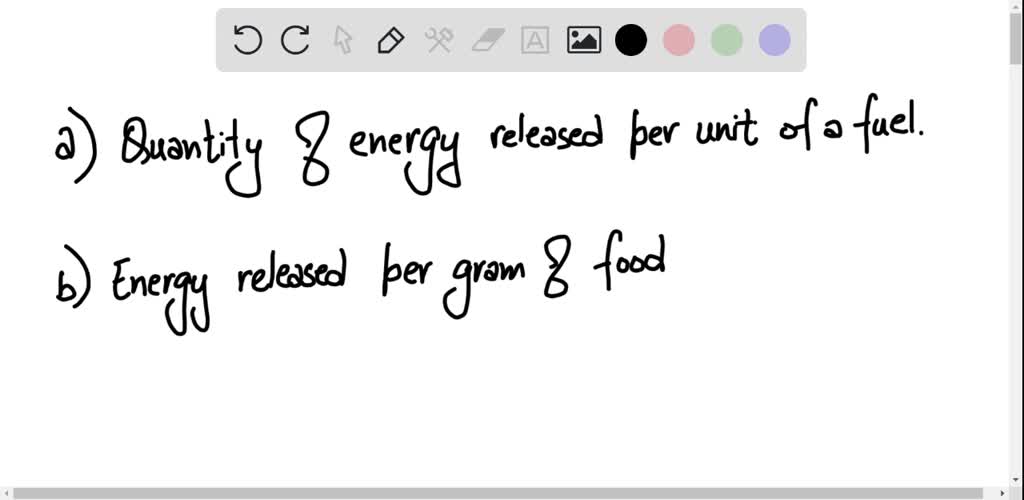 a) Quantity of energy released per unit of a fuel.
b) Energy released per gram of food